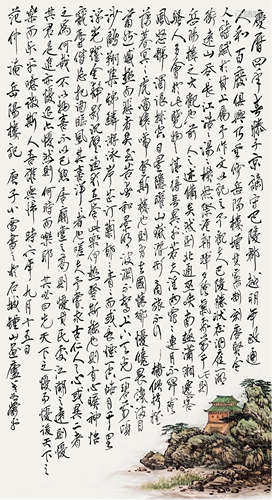 慶曆四年春滕子京謫守巴陵郡越明年政通
人和百廢俱興乃重修岳陽樓增其舊制刻唐賢今
人詩賦於其上屬予作文以記之予觀夫巴陵勝狀在洞庭一湖
銜遠山吞長江浩浩湯湯橫無際涯朝暉夕陰氣象萬千此則
岳陽樓之大觀也前人之述備矣然則北通巫峽南極瀟湘遷客
騷人多會於此覽物之情得無異乎若夫淫雨霏霏連月不開陰
風怒號濁浪排空日星隱耀山岳潛形商旅不行檣傾楫
摧薄暮冥冥虎嘯猿啼登斯樓也則有去國懷鄉憂讒畏譏滿目
蕭然感極而悲者矣至若春和景明波瀾不驚上下天光一碧萬頃
沙鷗翔集錦鱗游泳岸芷汀蘭郁郁青青而或長煙一空皓月千里
浮光躍金靜影沉璧漁歌互答此樂何極登斯樓也則有心曠神怡
寵辱偕忘把酒臨風其喜洋洋者矣嗟夫予嘗求古仁人之心或異二者
之為何哉不以物喜不以己悲居廟堂之高則憂其民處江湖之遠則憂
其君是進亦憂退亦憂然則何時而樂耶其必曰先天下之憂而憂後天下之
樂而樂乎噫微斯人吾誰與歸時六年九月十五日
范仲淹岳陽樓記庚子小雪